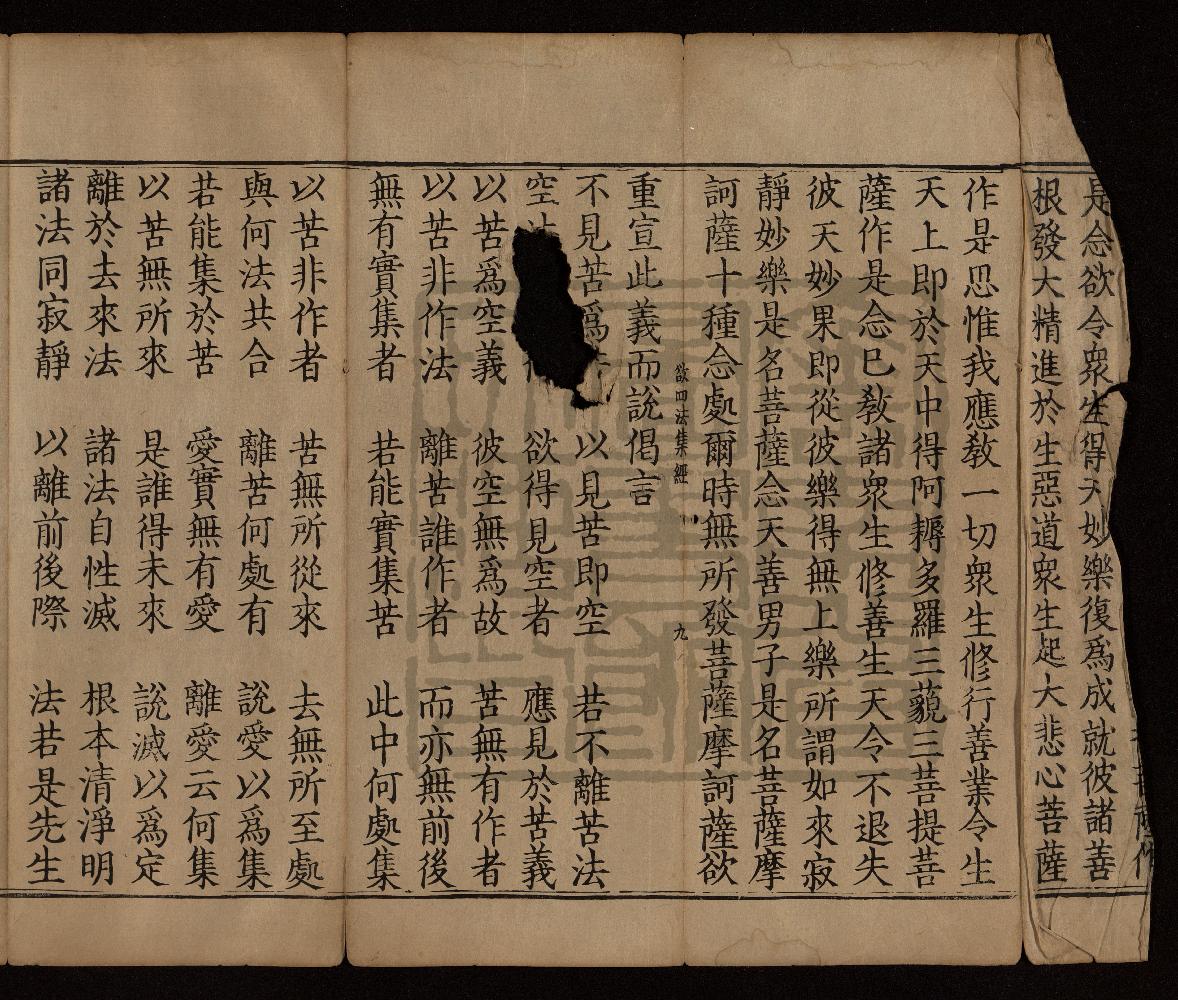 菩薩作
是念欲令衆生得天妙樂復爲成就彼諸善
根發大精進於生惡道衆生起大悲心菩薩
作是思惟我應教一切衆生修行善業令生
天上即於天中得阿耨多羅三藐三菩提菩
薩作是念已教諸衆生修善生天令不退失
彼天妙果即從彼樂得無上樂所謂如來寂
靜妙樂是名菩薩念天善男子是名菩薩摩
訶薩十種念處爾時無所發菩薩摩訶薩欲
欲四法集經 九
重宣此義而說偈言
不見苦爲 以見苦即空 若不離苦法
空 欲得見空者 應見於苦義
以苦爲空義 彼空無爲故 苦無有作者
以苦非作法 離苦誰作者 而亦無前後
無有實集者 若能實集苦 此中何處集
以苦非作者 苦無所從來 去無所至處
與何法共合 離苦何處有 說愛以爲集
若能集於苦 愛實無有愛 離愛云何集
以苦無所來 是誰得未來 說滅以爲定
離於去來法 諸法自性滅 根本清淨明
諸法同寂靜 以離前後際 法若是先生